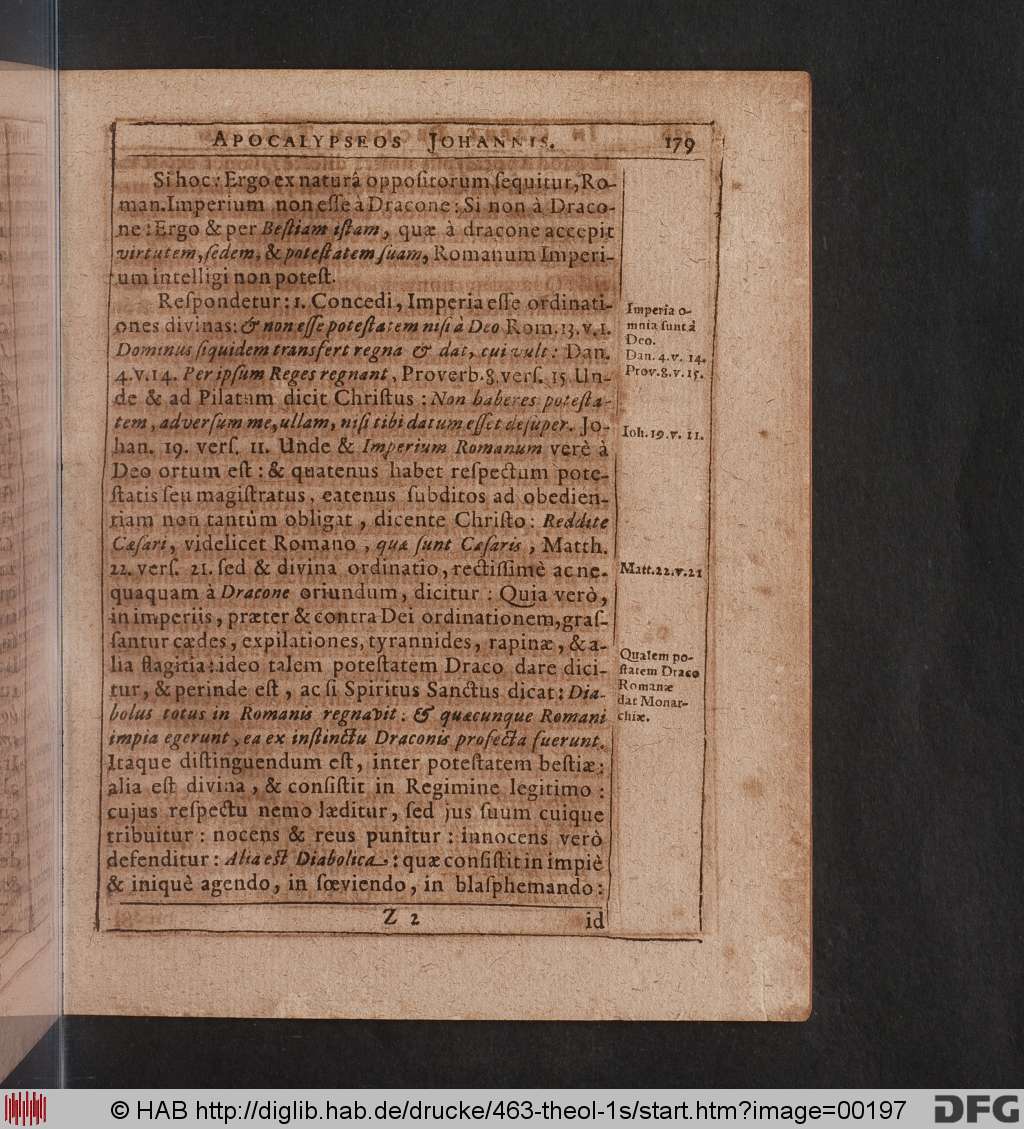 APOCALYPSEOS JOHANNIS. 179
Si hoc: Ergo ex naturâ oppoſitorum ſequitur, Ro-
man. Imperium non eſſe à Dracone: Si non à Draco-
ne: Ergo & per Beſtiam iſtam, quæ à dracone accepit
virtutem, ſedem, & poteſtatem ſuam, Romanum Imperi-
um intelligi non poteſt.
Reſpondetur: 1. Concedi, Imperia eſſe ordinati-
ones divinas: & non eſſe poteſtatem niſi à Deo Rom. 13. v. 1.
Dominus ſiquidem transfert regna & dat, cui vult: Dan.
4. v. 14. Per ipſum Reges regnant, Proverb. 8. verſ. 15. Un-
de & ad Pilatum dicit Chriſtus: Non haberes poteſta-
tem, adverſum me, ullam, niſi tibi datum eſſet deſuper. Jo-
han. 19. verſ. 11. Unde & Imperium Romanum verè à
Deo ortum eſt: & quatenus habet reſpectum pote-
ſtatis ſeu magiſtratus, eatenus ſubditos ad obedien-
tiam non tantùm obligat, dicente Chriſto: Reddite
Cæſari, videlicet Romano, quæ ſunt Cæſaris, Matth.
22. verſ. 21. ſed & divina ordinatio, rectiſſimè ac ne-
quaquam à Dracone oriundum, dicitur: Quia verò,
in imperiis, præter & contra Dei ordinationem, graſ-
ſantur cædes, expilationes, tyrannides, rapinæ, & a-
lia flagitia: ideo talem poteſtatem Draco dare dici-
tur, & perinde eſt, ac ſi Spiritus Sanctus dicat: Dia-
bolus totus in Romanis regnavit: & quæcunque Romani
impia egerunt, ea ex inſtinctu Draconis profecta fuerunt.
Itaque diſtinguendum eſt, inter poteſtatem beſtiæ:
alia eſt divina, & conſiſtit in Regimine legitimo:
cujus reſpectu nemo læditur, ſed jus ſuum cuique
tribuitur: nocens & reus punitur: innocens verò
defenditur: Alia eſt Diabolica: quæ conſiſtit in impiè
& iniquè agendo, in ſœviendo, in blaſphemando:
Z 2 id
Imperia o-
mnia ſunt à
Deo.
Dan. 4. v. 14.
Prov. 8. v. 15.
Ioh. 19. v. 11.
Matt. 22. v. 21
Qualem po-
ſtatem Draco
Romanæ
dat Monar-
chiæ.
© HAB http://diglib.hab.de/drucke/463-theol-1s/start.htm?image=00197 DFG